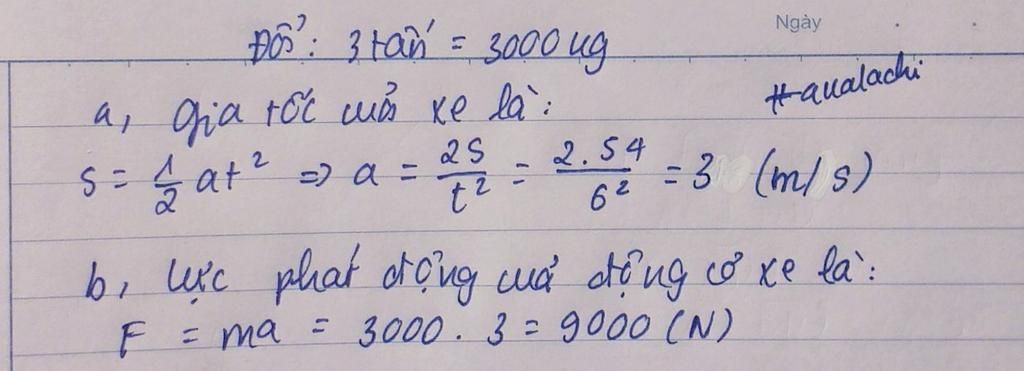 Ngày
Đổi: 3 tấn = 3000 kg
#aualachi
a, Gia tốc của xe là:
s = 1/2 at² => a = 2S/t² = 2.54/6² = 3 (m/s)
b, Lực phát động của động cơ xe là:
F = ma = 3000 . 3 = 9000 (N)